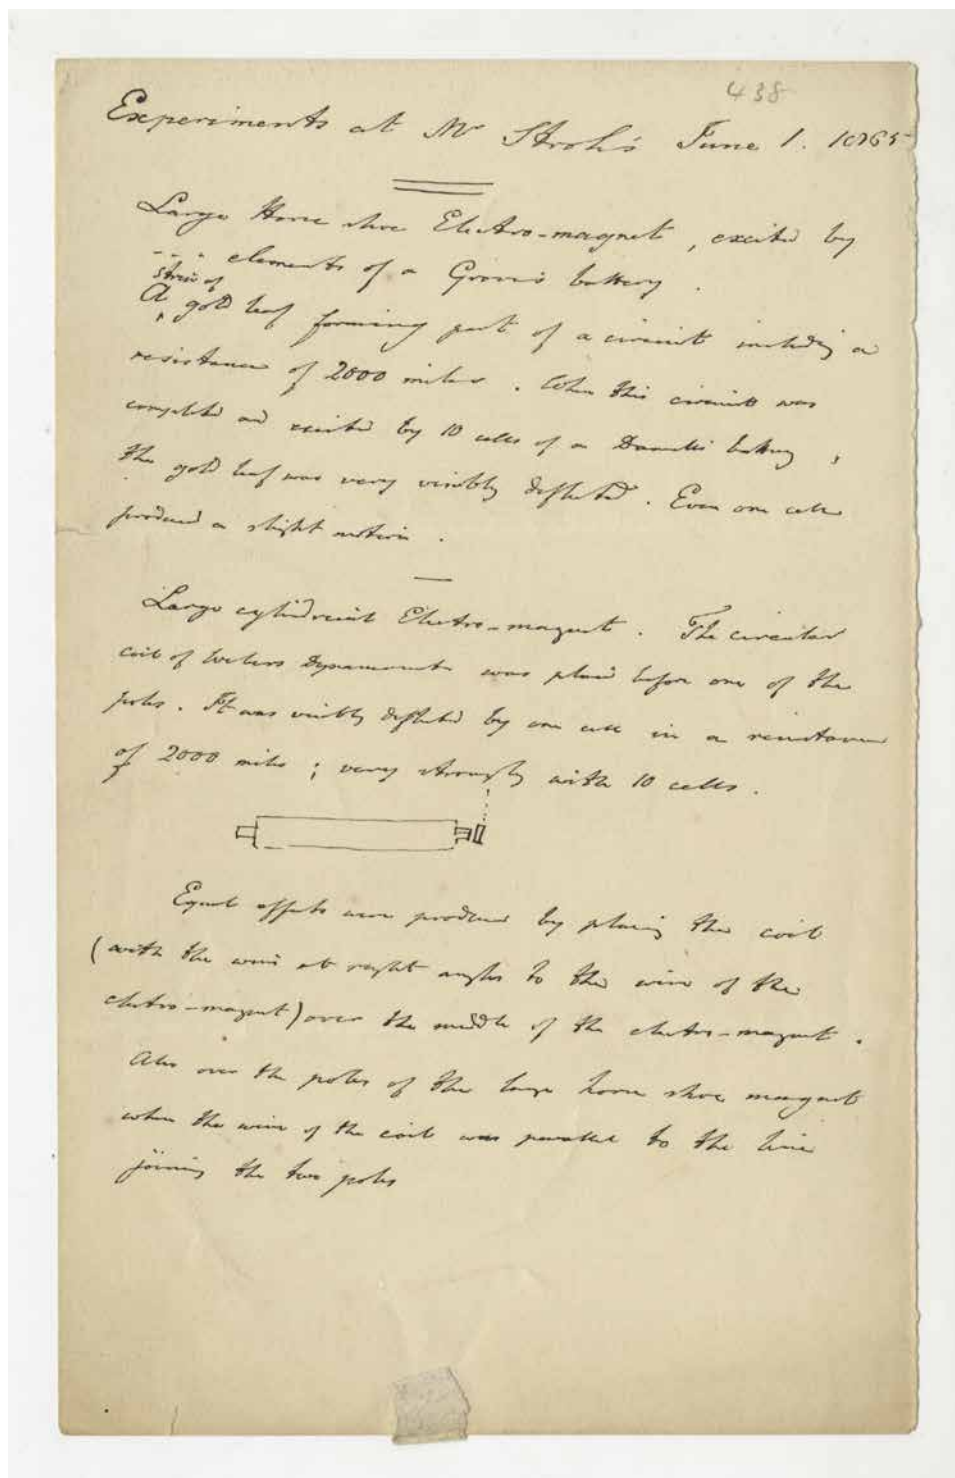 438
Experiments at Mr Stroh's June 1. 1865
Large Horse shoe Electro-magnet, excited by
--- elements of a Grove's battery.
strip of
A gold leaf forming part of a circuit including a
resistance of 2000 miles. When this circuit was
completed and excited by 10 cells of a Daniell's battery,
the gold leaf was very visibly deflected. Even one cell
produced a slight motion.
Large cylindrical Electro-magnet. The circular
coil of Webers Dynamometer was placed before one of the
poles. It was visibly deflected by one cell in a resistance
of 2000 miles; very strongly with 10 cells.
Equal effects were produced by placing the coil
(with the wire at right angles to the wire of the
electro-magnet) over the middle of the electro-magnet.
Also over the poles of the large horse shoe magnet
when the wire of the coil was parallel to the line
joining the two poles